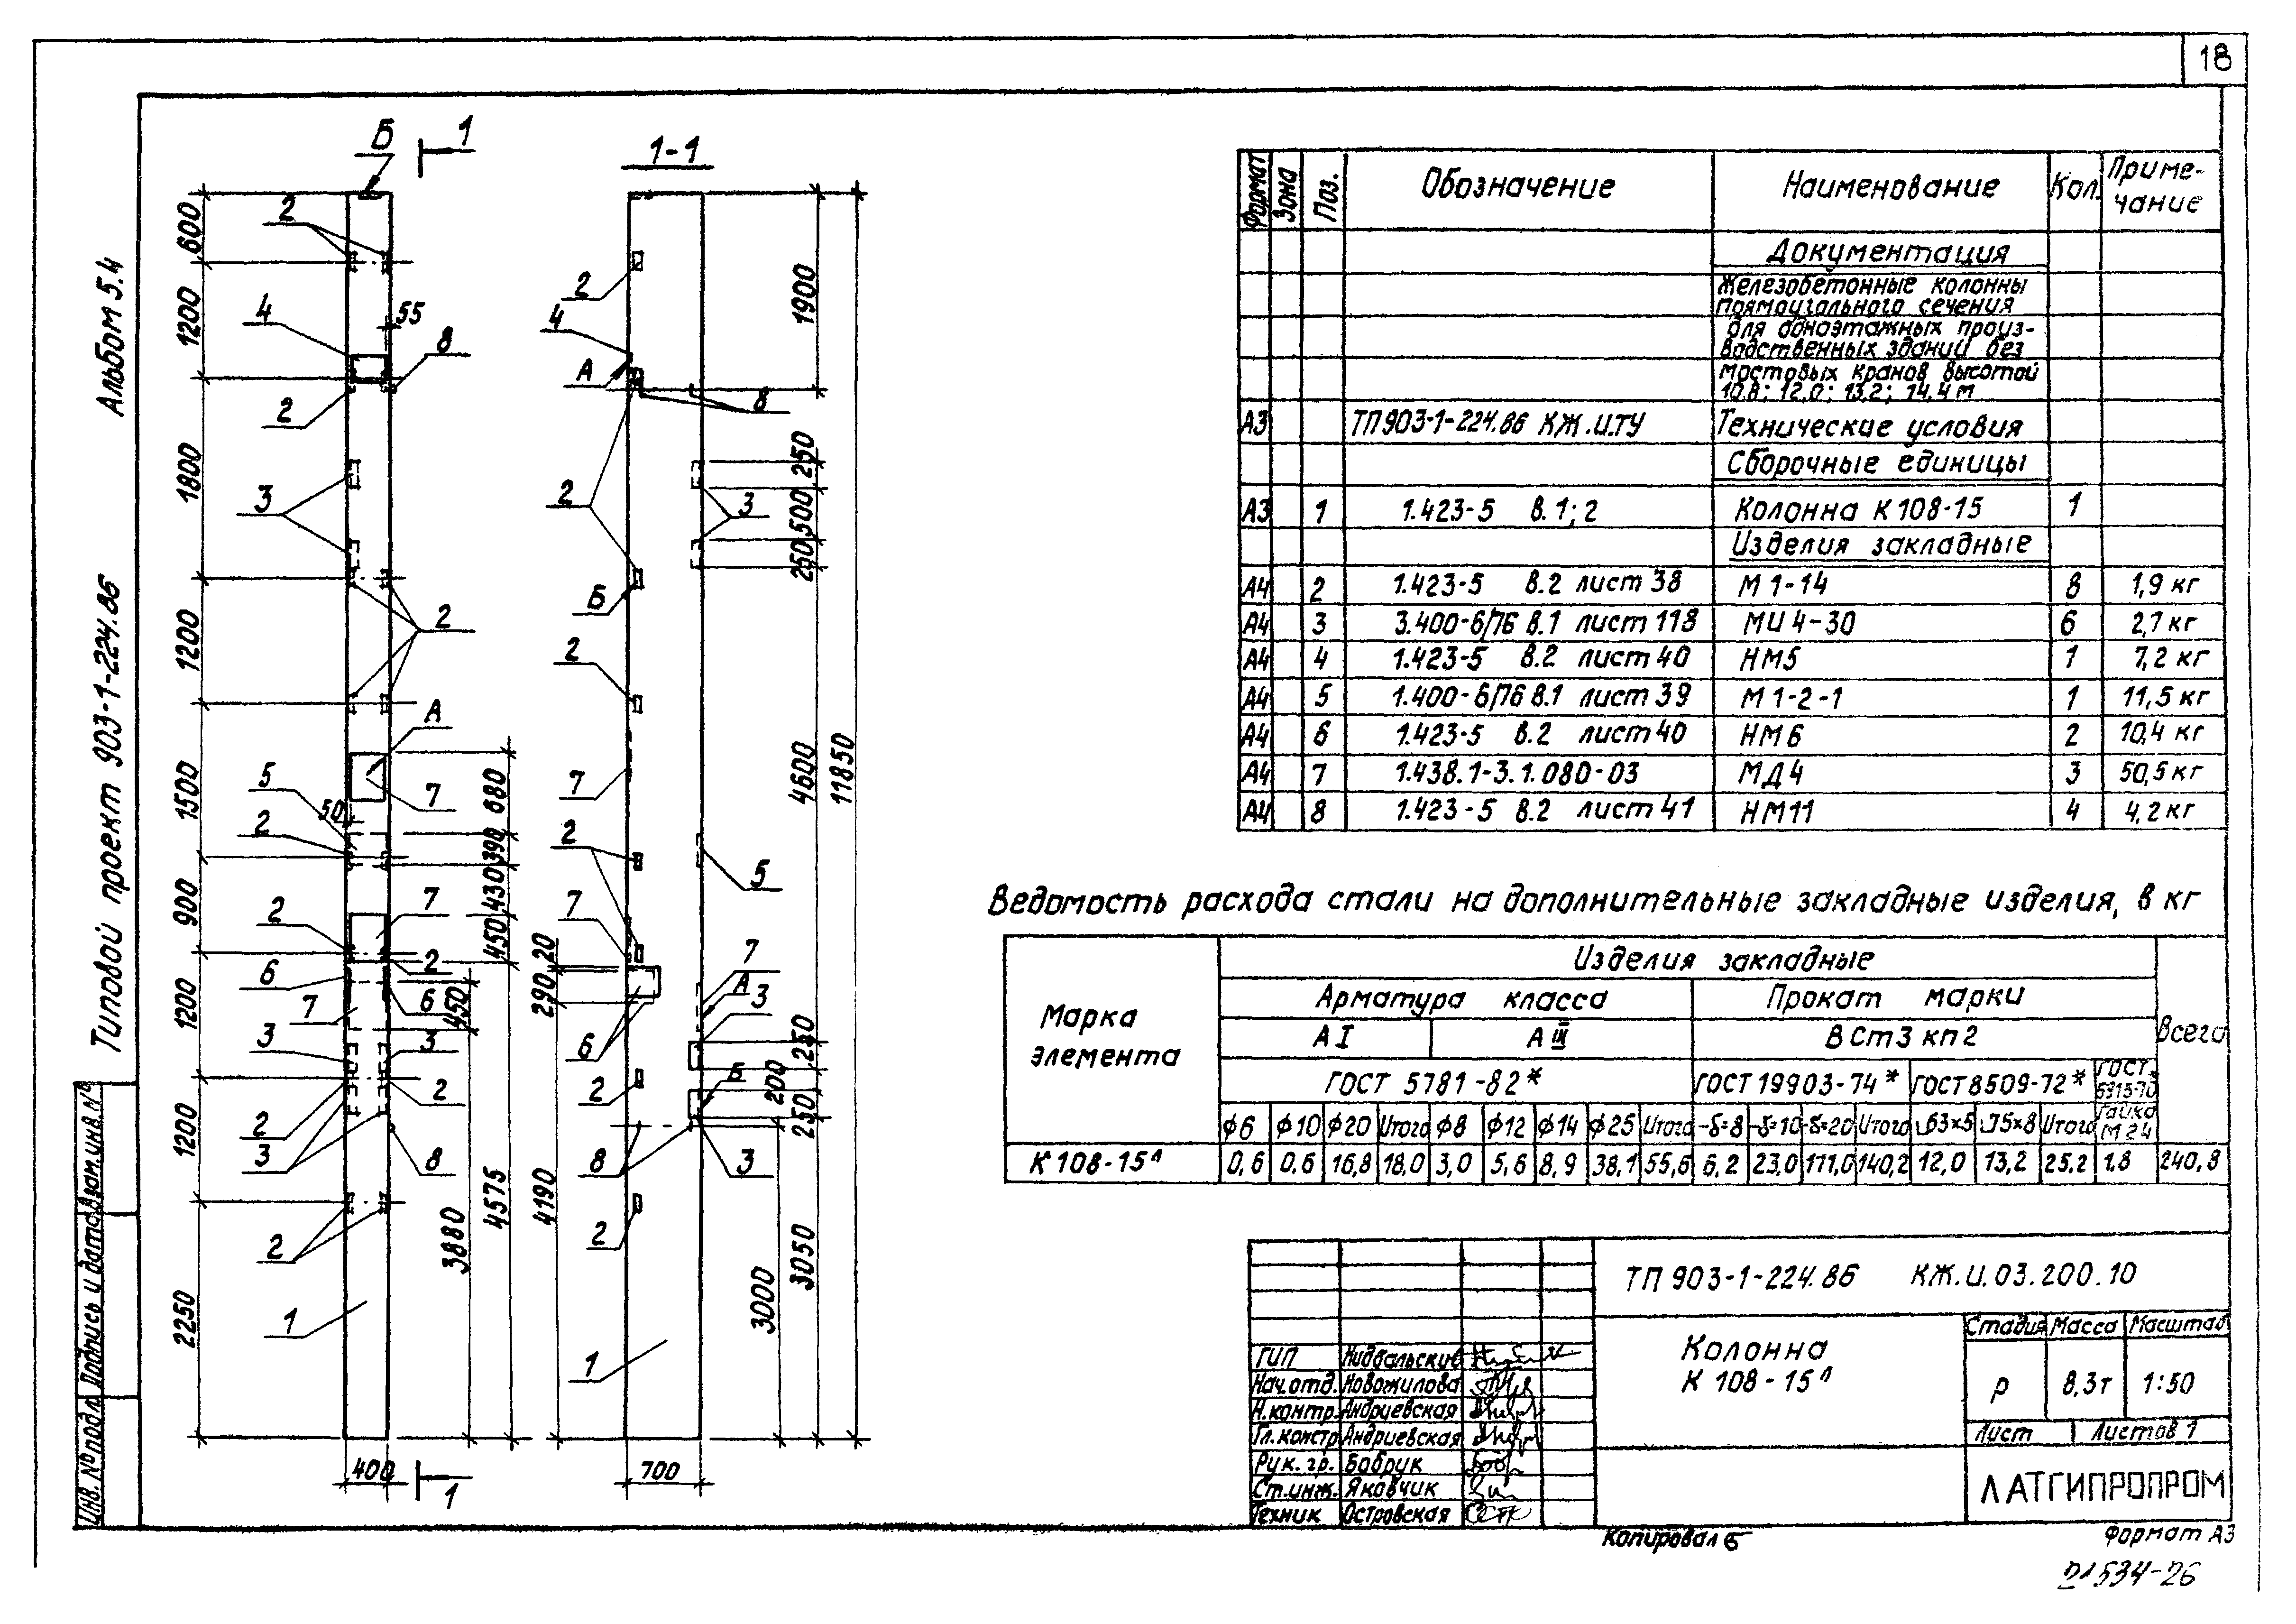 18
Альбом 5.4
Типовой проект 903-1-224.86
Инв. № подл. Подпись и дата Взам.инв.№
Б 1
1-1
600
1200
1800
1200
1500
900
1200
1200
2250
2
4
55
8
2
3
2
А
7
5
50
2
680
390
430
450
2
7
2
6
7
6
450
3
3
2
2
3
8
2
1
3880
4575
400
1
2
4
А
8
2
3
Б
2
7
2
5
7
20
290
7
А
3
6
2
Б
8
3
2
1
4190
700
1900
250
500
250
4600
11850
250
200
250
3050
3000
Формат Зона Поз. Обозначение Наименование Кол. Приме-
чание
Документация
Железобетонные колонны
прямоугольного сечения
для одноэтажных произ-
водственных зданий без
мостовых кранов высотой
10,8; 12,0; 13,2; 14,4 м
А3 ТП903-1-224.86 КЖ.И.ТУ Технические условия
Сборочные единицы
А3 1 1.423-5 в.1; 2 Колонна К108-15 1
Изделия закладные
А4 2 1.423-5 в.2 лист 38 М 1-14 8 1,9 кг
А4 3 3.400-6/76 в.1 лист 118 МИ 4-30 6 2,7 кг
А4 4 1.423-5 в.2 лист 40 НМ5 1 7,2 кг
А4 5 1.400-6/76 в.1 лист 39 М1-2-1 1 11,5 кг
А4 6 1.423-5 в.2 лист 40 НМ6 2 10,4 кг
А4 7 1.438.1-3.1.080-03 МД4 3 50,5 кг
А4 8 1.423-5 в.2 лист 41 НМ11 4 4,2 кг
Ведомость расхода стали на дополнительные закладные изделия, в кг
Марка элемента Изделия закладные Всего
Арматура класса Прокат марки
А I А III ВСт3 кп2
ГОСТ 5781-82* ГОСТ 19903-74* ГОСТ 8509-72* ГОСТ 5915-70
ф6 ф10 ф20 Итого ф8 ф12 ф14 ф25 Итого -δ=8 -δ=10 -δ=20 Итого 63×5 75×8 Итого Гайка М24
К 108-15ᴧ 0,6 0,6 16,8 18,0 3,0 5,6 8,9 38,1 55,6 6,2 23,0 111,0 140,2 12,0 13,2 25,2 1,8 240,8
ТП 903-1-224.86 КЖ.И.03.200.10
Колонна
К 108-15ᴧ
Стадия Масса Масштаб
Р 8,3т 1:50
Лист 1 Листов 1
ЛАТГИПРОПРОМ
ГИП
Нач.отд. Новожилова
Н.контр. Андриевская
Гл.констр. Андриевская
Рук. гр. Бобрук
Ст.инж. Яковчик
Техник Островская
Копировал Б
Формат А3
21534-26